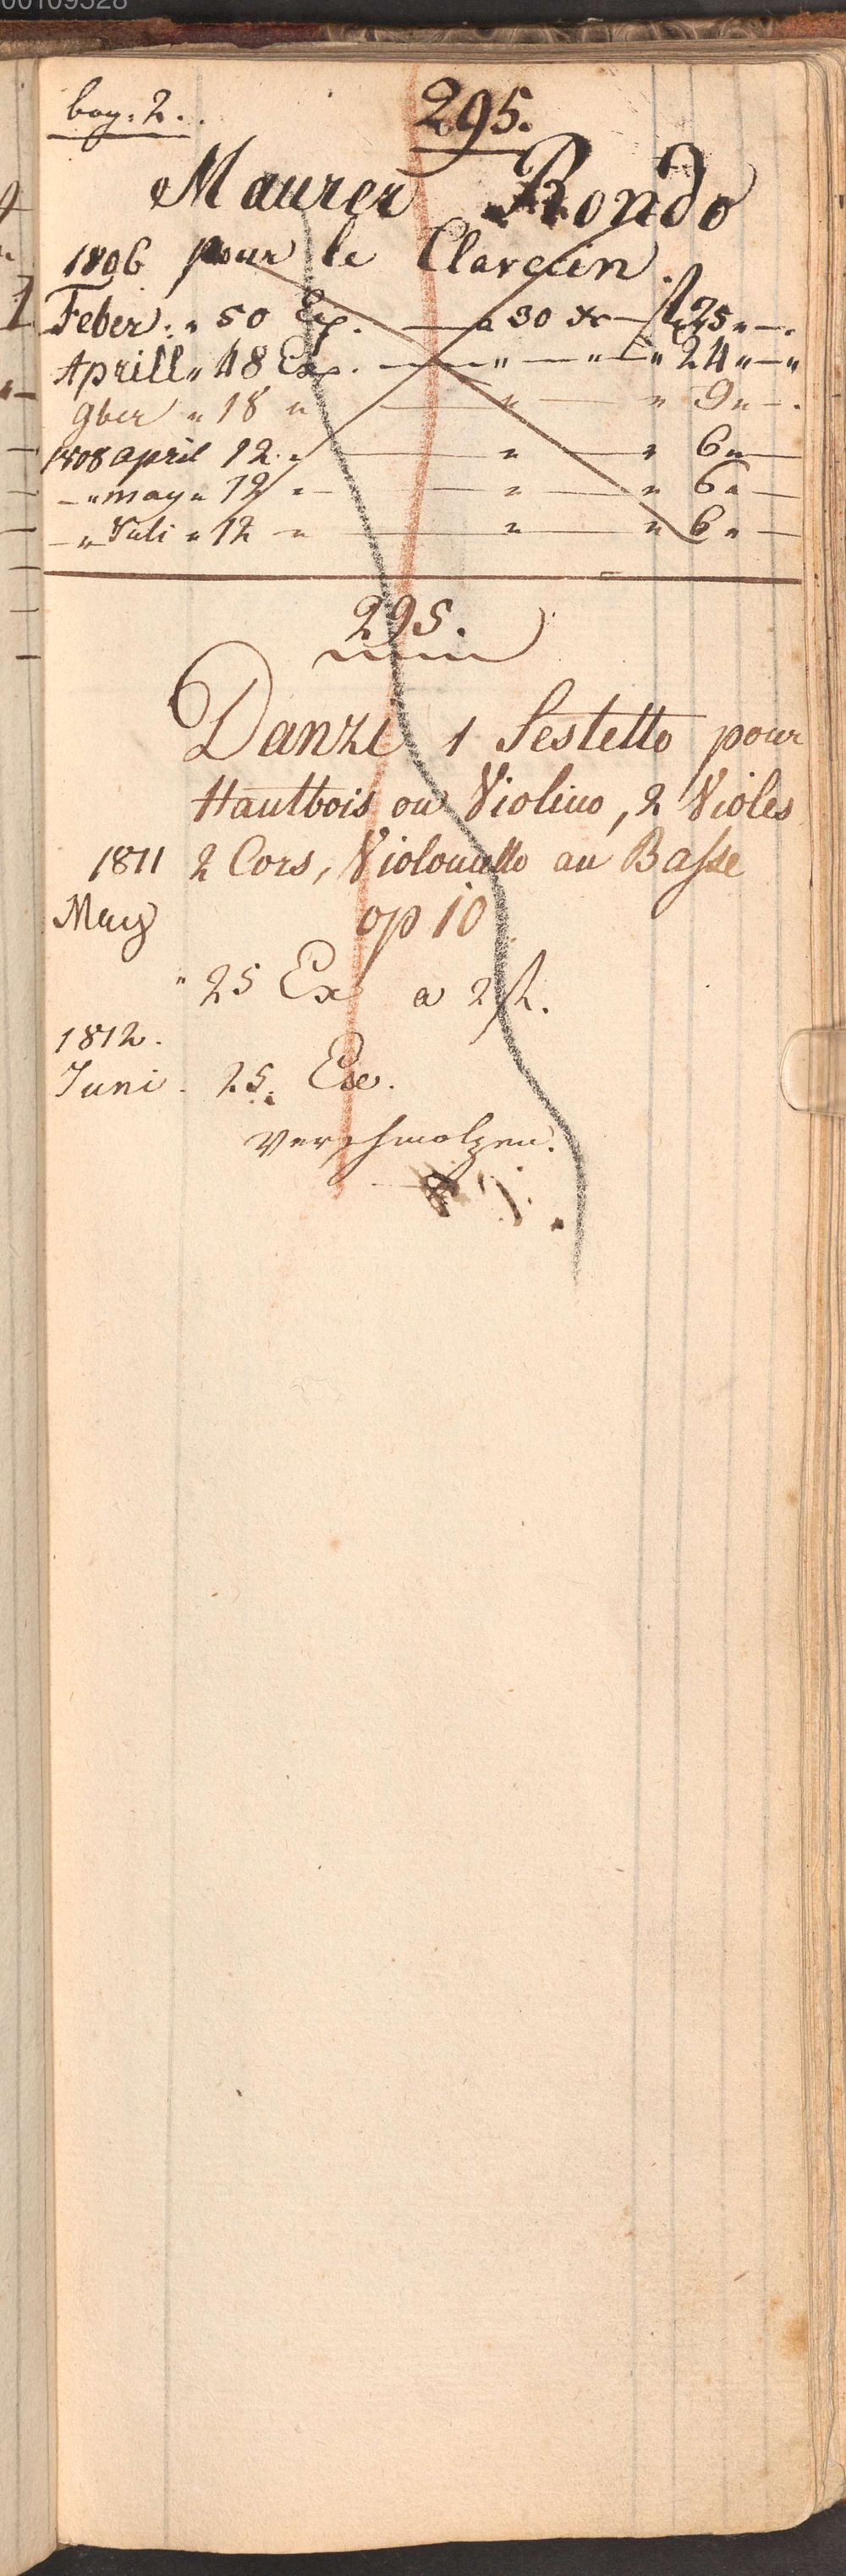 00109528
bog. 2..
295.
Maurer Rondo
1806 pour le Clavecin.
Feber: " 50 Ex. — a 30 xr — fl 25 " —.
Aprill " 48 Ex. — " — " — " 24 " — "
9ber " 18 " — " — " 9 " — .
1808 april 12 " — " — " 6 " —
— " may " 12 " — " — " 6 " —
— " Juli " 12 " — " — " 6 " —
295.
Danzi 1 Sestetto pour
Hautbois ou Violino, 2 Violes
1811 2 Cors, Violoncello au Basse
May op 10
" 25 Ex a 2 fl.
1812.
Juni. 25. Ex.
Verschmolzen.